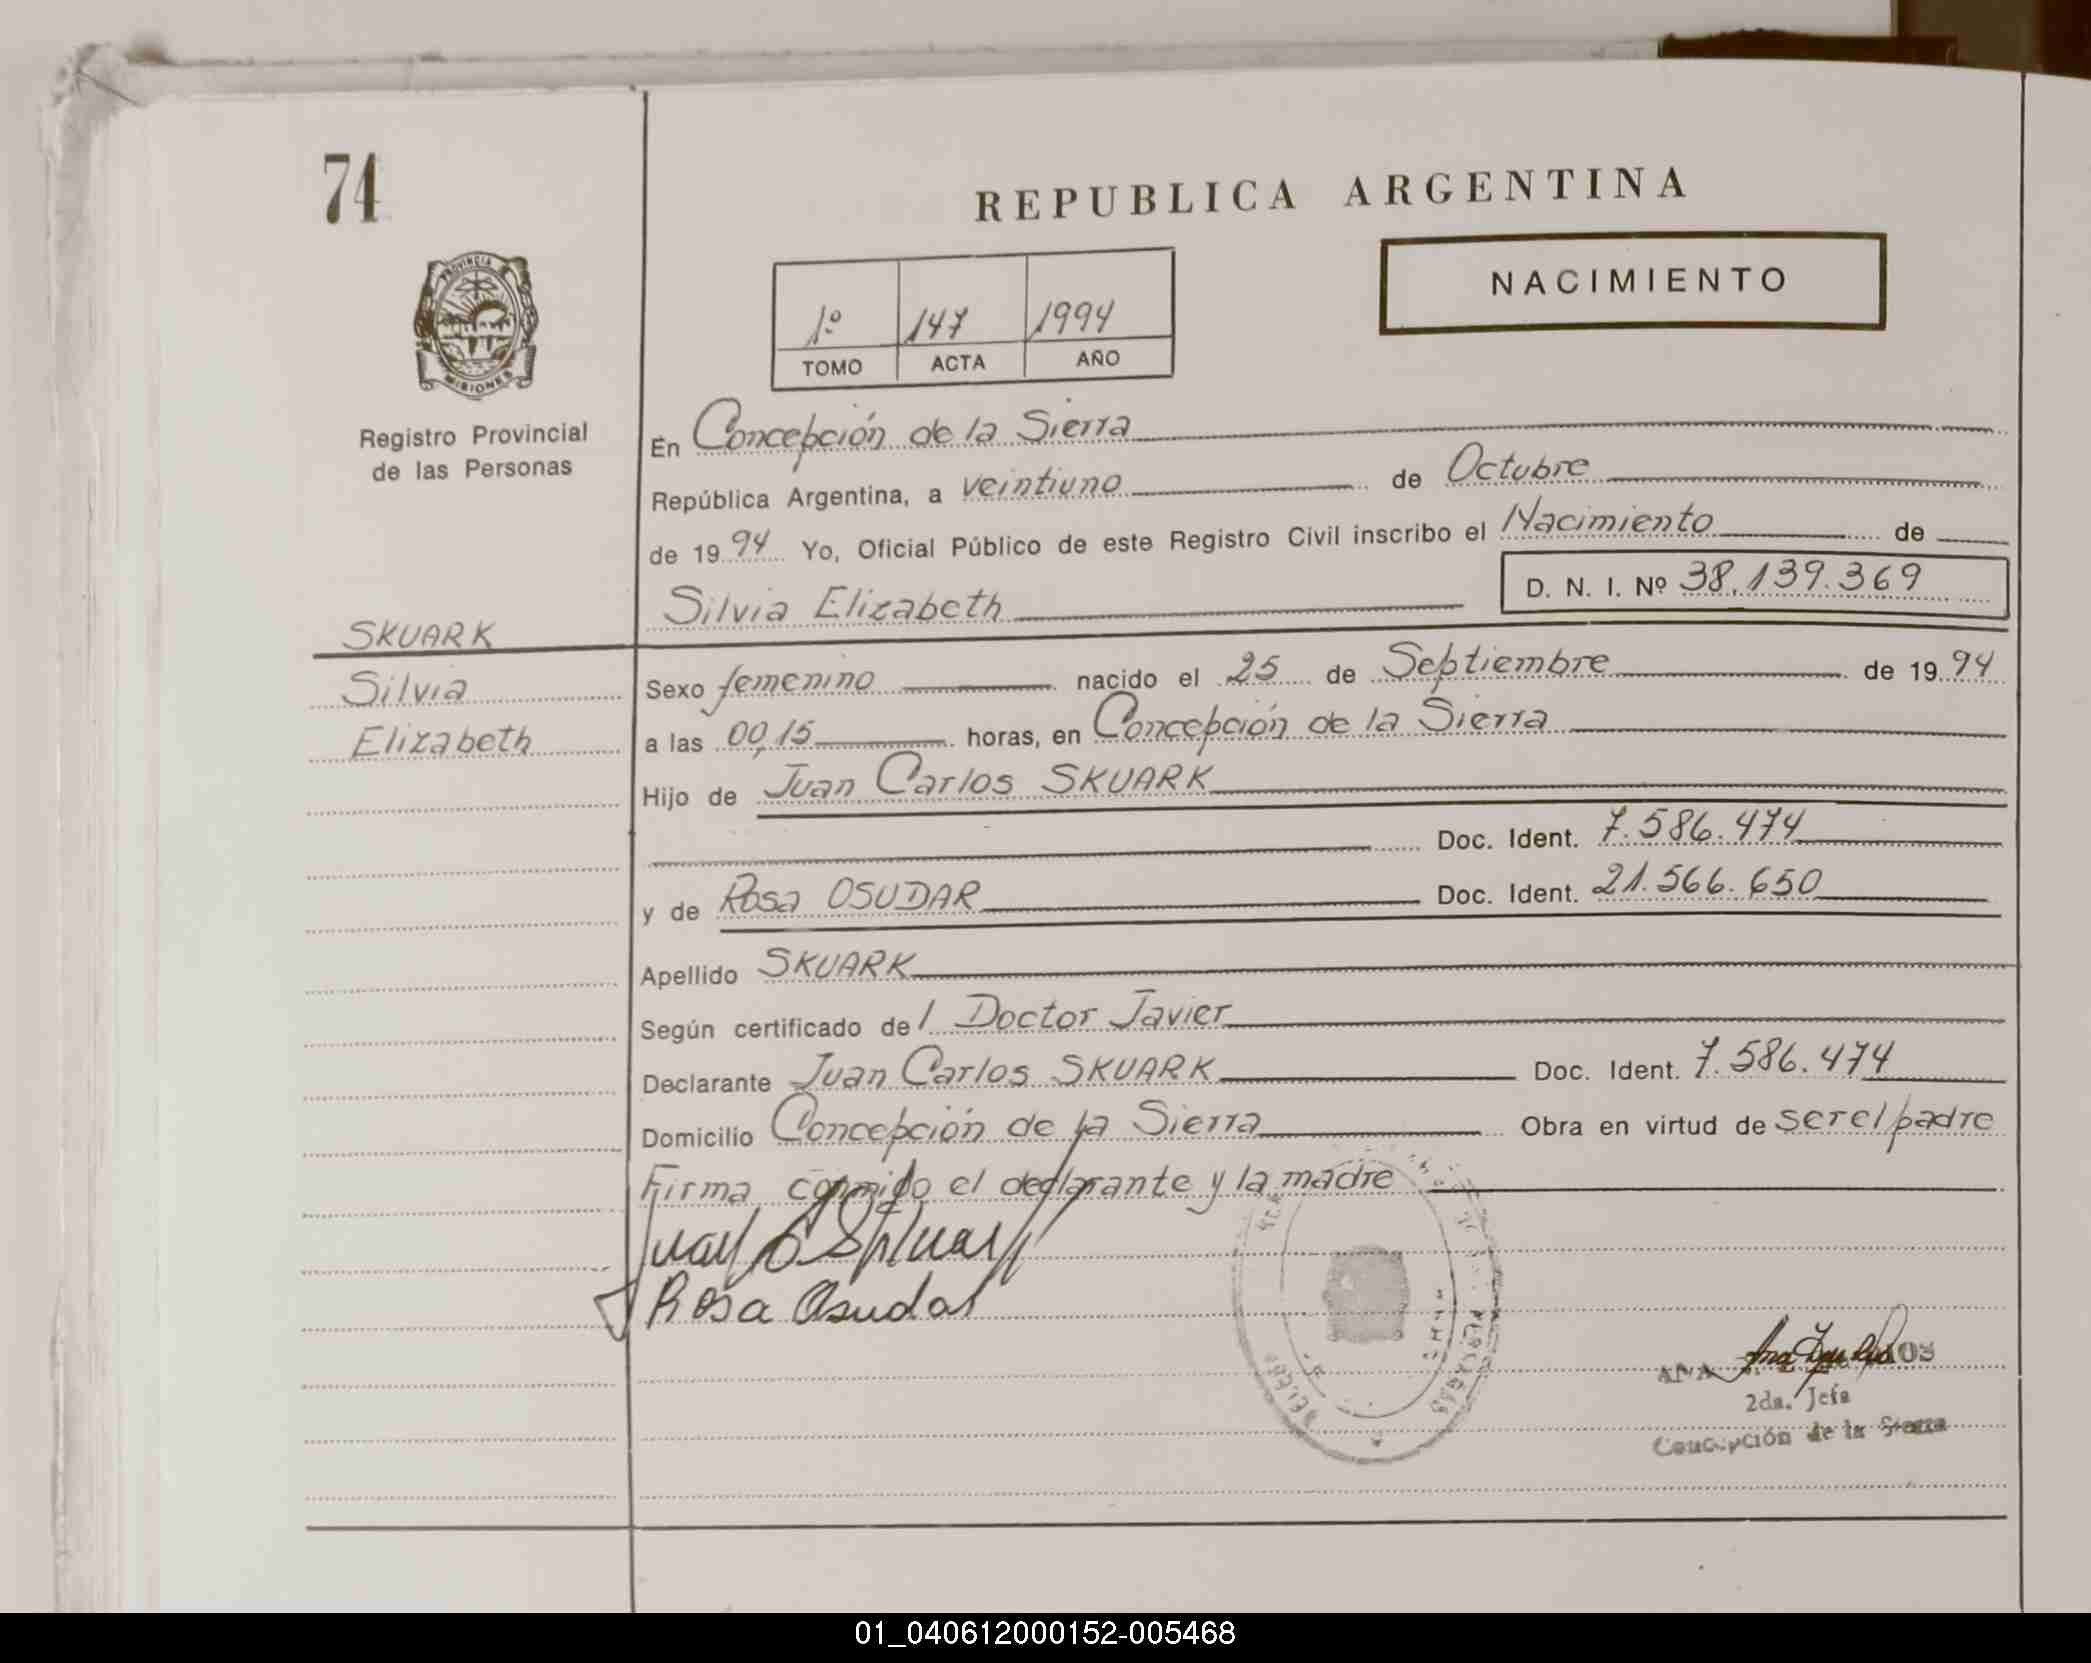 74
REPUBLICA ARGENTINA
NACIMIENTO
PROVINCIA
MISIONES
1º 147 1994
TOMO ACTA AÑO
Registro Provincial
de las Personas
En Concepción de la Sierra
República Argentina, a veintiuno de Octubre
de 1994 Yo, Oficial Público de este Registro Civil inscribo el Nacimiento de
Silvia Elizabeth D. N. I. Nº 38.139.369
SKUARK
Silvia
Elizabeth
Sexo femenino nacido el 25 de Septiembre de 1994
a las 00,15 horas, en Concepción de la Sierra
Hijo de Juan Carlos SKUARK
Doc. Ident. 7.586.474
y de Rosa OSUDAR Doc. Ident. 21.566.650
Apellido SKUARK
Según certificado del Doctor Javier
Declarante Juan Carlos SKUARK Doc. Ident. 7.586.474
Domicilio Concepción de la Sierra Obra en virtud de ser el padre
Firma conmigo el declarante y la madre
Juan C
Rosa Osudar
ANA
2da. Jefa
Concepción de la Sierra
01_040612000152-005468